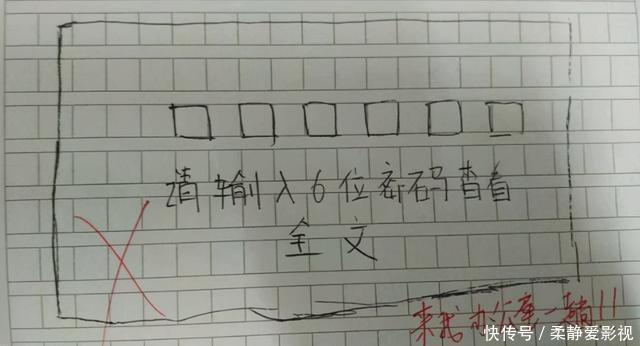 请输入6位密码查看
全文
来我办公室一趟!!
快传号／柔静爱影视